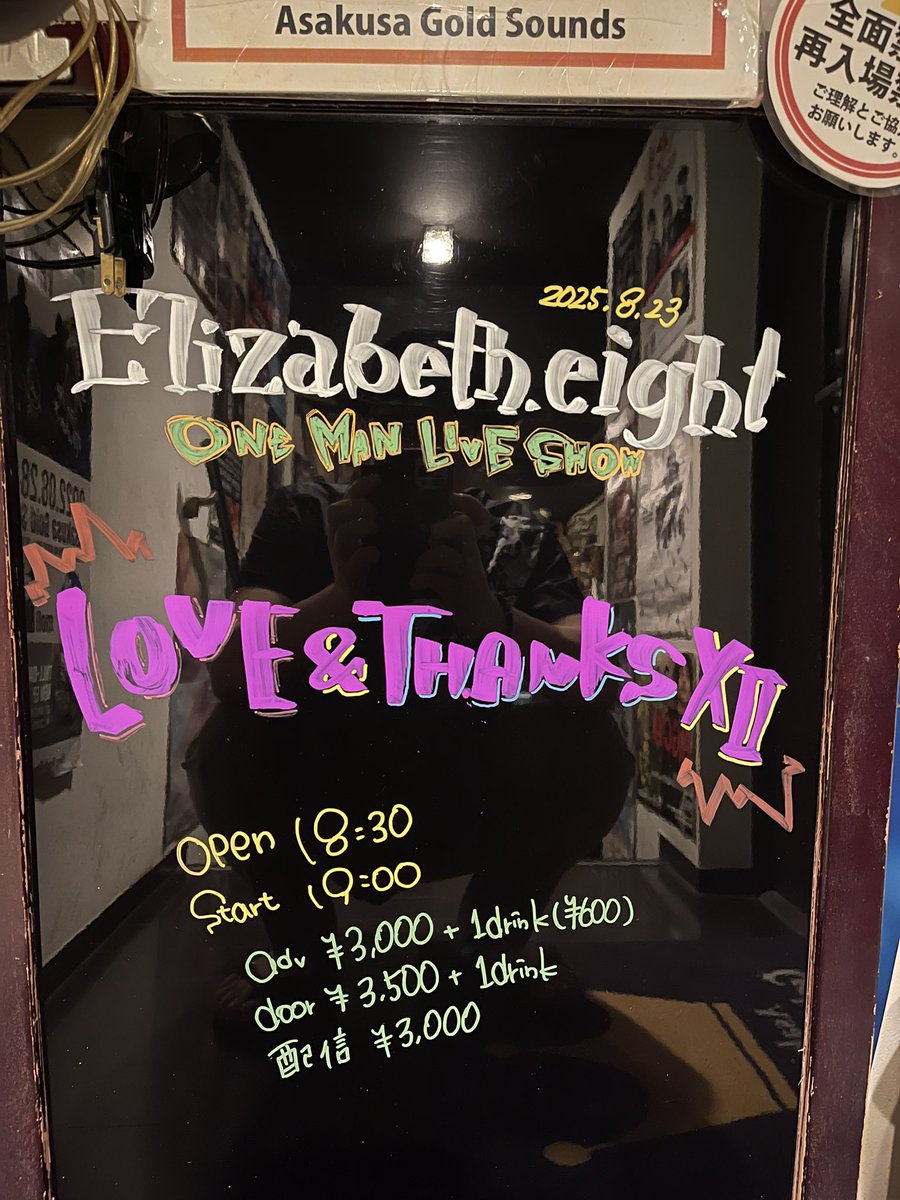 Asakusa Gold Sounds
全面禁
再入場禁
ご理解とご協
お願いします。
2025.8.23
Elizabeth.eight
ONE MAN LIVE SHOW
LOVE & THANKS XII
Open 18:30
Start 19:00
Adv ¥3,000 + 1drink (¥600)
door ¥3.500 + 1drink
配信 ¥3,000